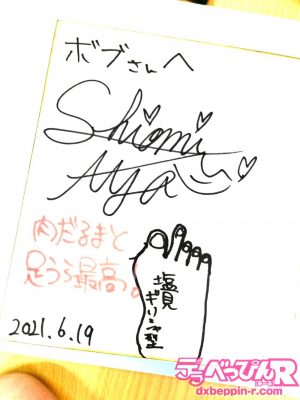 ボブさんへ
Shiomi
Aya
肉だるまと
足うら最高!
塩見
ギリシャ型
2021.6.19
デラべっぴんR
dxbeppin-r.com